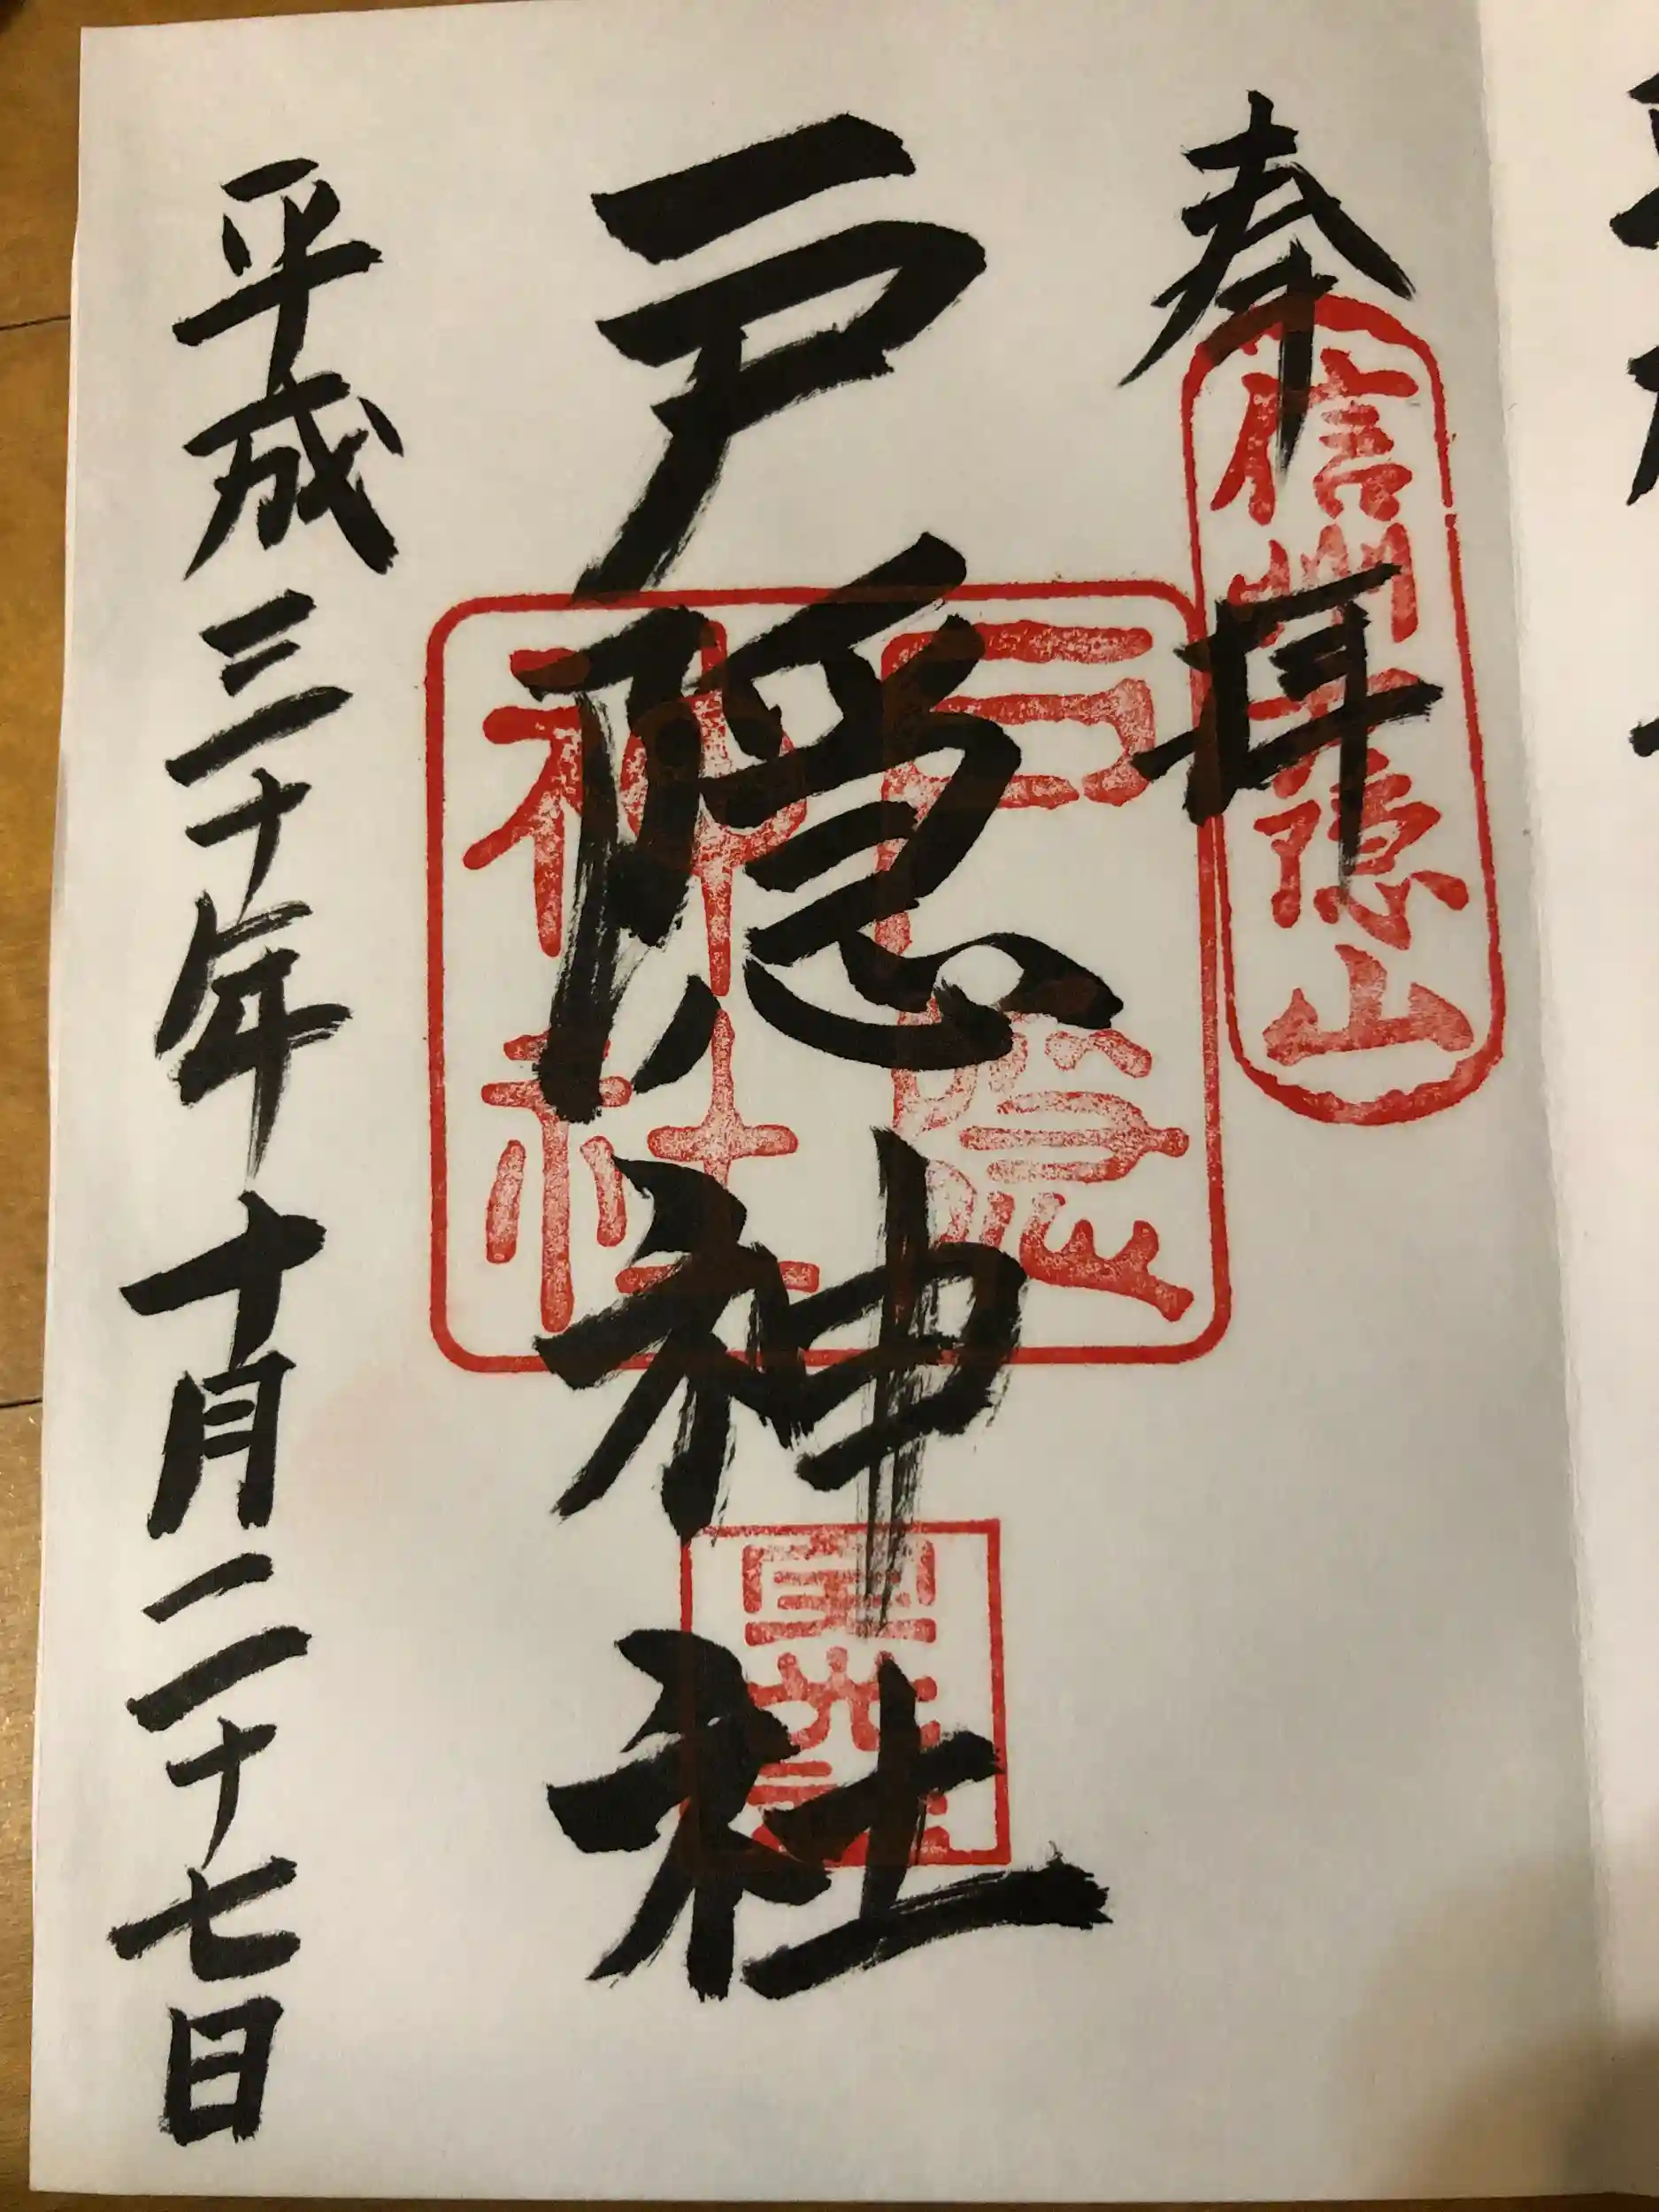 奉拝
信州戸隠山
戸隠神社
戸隠
神社
平成三十年十月二十七日